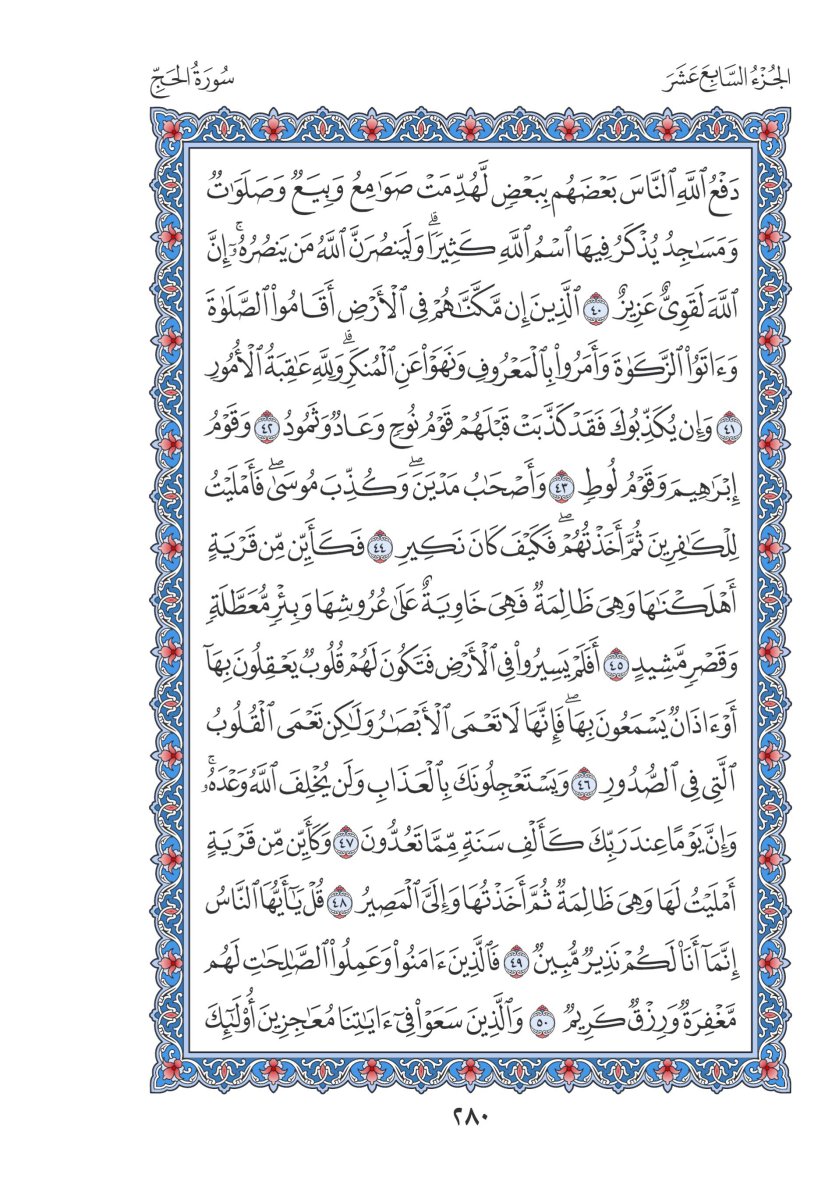 الجُزْءُ السَّابِعَ عَشَرَ
سُورَةُ الحَجِّ
دَفْعُ ٱللَّهِ ٱلنَّاسَ بَعْضَهُم بِبَعْضٍ لَّهُدِّمَتْ صَوَٰمِعُ وَبِيَعٌ وَصَلَوَٰتٌ
وَمَسَٰجِدُ يُذْكَرُ فِيهَا ٱسْمُ ٱللَّهِ كَثِيرًاۗ وَلَيَنصُرَنَّ ٱللَّهُ مَن يَنصُرُهُۥٓۚ إِنَّ
ٱللَّهَ لَقَوِىٌّ عَزِيزٌ ٤٠ ٱلَّذِينَ إِن مَّكَّنَّٰهُمْ فِى ٱلْأَرْضِ أَقَامُوا۟ ٱلصَّلَوٰةَ
وَءَاتَوُا۟ ٱلزَّكَوٰةَ وَأَمَرُوا۟ بِٱلْمَعْرُوفِ وَنَهَوْا۟ عَنِ ٱلْمُنكَرِۗ وَلِلَّهِ عَٰقِبَةُ ٱلْأُمُورِ
٤١ وَإِن يُكَذِّبُوكَ فَقَدْ كَذَّبَتْ قَبْلَهُمْ قَوْمُ نُوحٍ وَعَادٌ وَثَمُودُ ٤٢ وَقَوْمُ
إِبْرَٰهِيمَ وَقَوْمُ لُوطٍ ٤٣ وَأَصْحَٰبُ مَدْيَنَۖ وَكُذِّبَ مُوسَىٰۖ فَأَمْلَيْتُ
لِلْكَٰفِرِينَ ثُمَّ أَخَذْتُهُمْۖ فَكَيْفَ كَانَ نَكِيرِ ٤٤ فَكَأَيِّن مِّن قَرْيَةٍ
أَهْلَكْنَٰهَا وَهِىَ ظَالِمَةٌ فَهِىَ خَاوِيَةٌ عَلَىٰ عُرُوشِهَا وَبِئْرٍ مُّعَطَّلَةٍ
وَقَصْرٍ مَّشِيدٍ ٤٥ أَفَلَمْ يَسِيرُوا۟ فِى ٱلْأَرْضِ فَتَكُونَ لَهُمْ قُلُوبٌ يَعْقِلُونَ بِهَآ
أَوْ ءَاذَانٌ يَسْمَعُونَ بِهَاۖ فَإِنَّهَا لَا تَعْمَى ٱلْأَبْصَٰرُ وَلَٰكِن تَعْمَى ٱلْقُلُوبُ
ٱلَّتِى فِى ٱلصُّدُورِ ٤٦ وَيَسْتَعْجِلُونَكَ بِٱلْعَذَابِ وَلَن يُخْلِفَ ٱللَّهُ وَعْدَهُۥۚ
وَإِنَّ يَوْمًا عِندَ رَبِّكَ كَأَلْفِ سَنَةٍ مِّمَّا تَعُدُّونَ ٤٧ وَكَأَيِّن مِّن قَرْيَةٍ
أَمْلَيْتُ لَهَا وَهِىَ ظَالِمَةٌ ثُمَّ أَخَذْتُهَا وَإِلَىَّ ٱلْمَصِيرُ ٤٨ قُلْ يَٰٓأَيُّهَا ٱلنَّاسُ
إِنَّمَآ أَنَا۠ لَكُمْ نَذِيرٌ مُّبِينٌ ٤٩ فَٱلَّذِينَ ءَامَنُوا۟ وَعَمِلُوا۟ ٱلصَّٰلِحَٰتِ لَهُم
مَّغْفِرَةٌ وَرِزْقٌ كَرِيمٌ ٥٠ وَٱلَّذِينَ سَعَوْا۟ فِىٓ ءَايَٰتِنَا مُعَٰجِزِينَ أُو۟لَٰٓئِكَ
٢٨٠